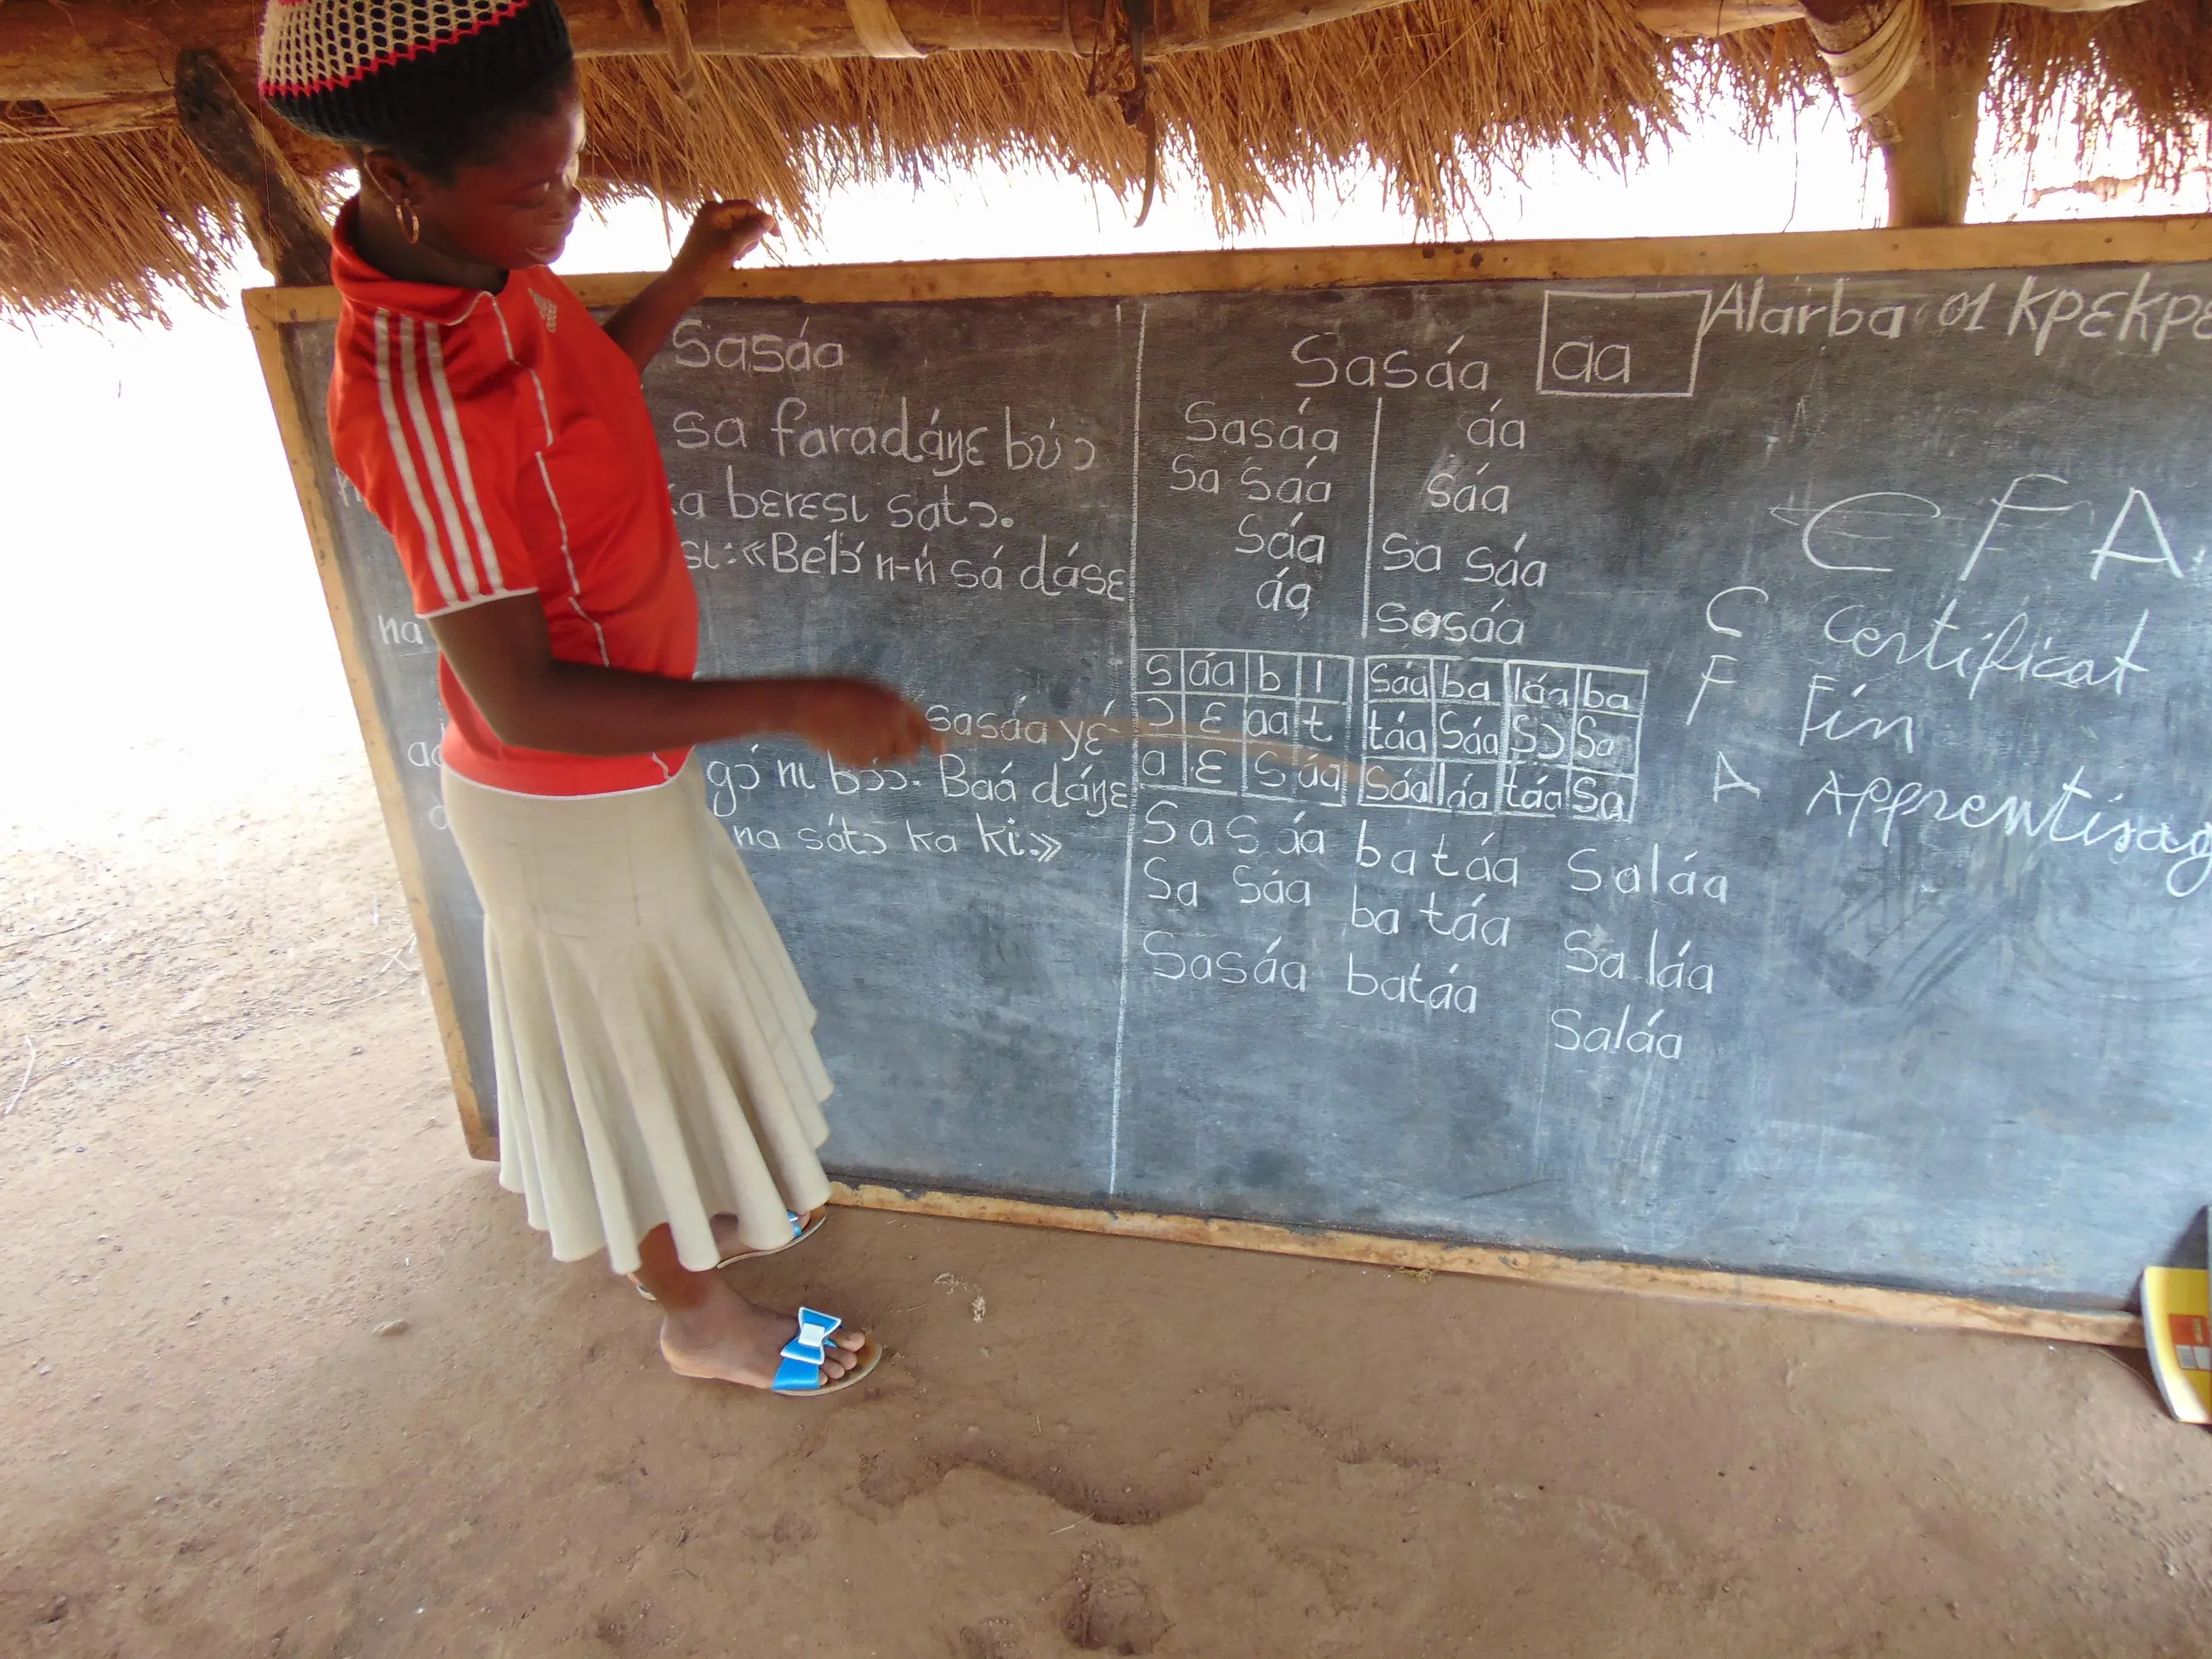 Sasáa
sa faradáŋɛ bʋ́ɔ
bɛrɛsɩ satɔ.
sɩ: «Bélɔ́ n-ń sá dásɛ
na
sasáa yɛ́
gɔ́ nɩ bɔ́ɔ. Baá dáŋɛ
na sátɔ ka ki.»
Sasáa aa
Sasáa áa
Sa sáa sáa
Sáa sa sáa
áa sasáa
s áa b l sáa ba láa ba
ɔ ɛ aa t táa sáa sɔ sa
a ɛ s áa sáa láa táa sa
Sasáa batáa Saláa
Sa sáa ba táa Sa láa
Sasáa batáa
Saláa
Alarba 01 Kpɛkpɛ
CFA
C Certificat
F Fin
A Apprentisag